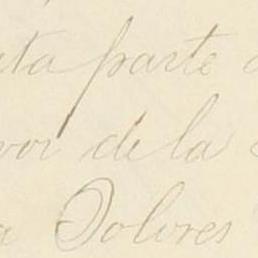 ta parte
de la
Dolores